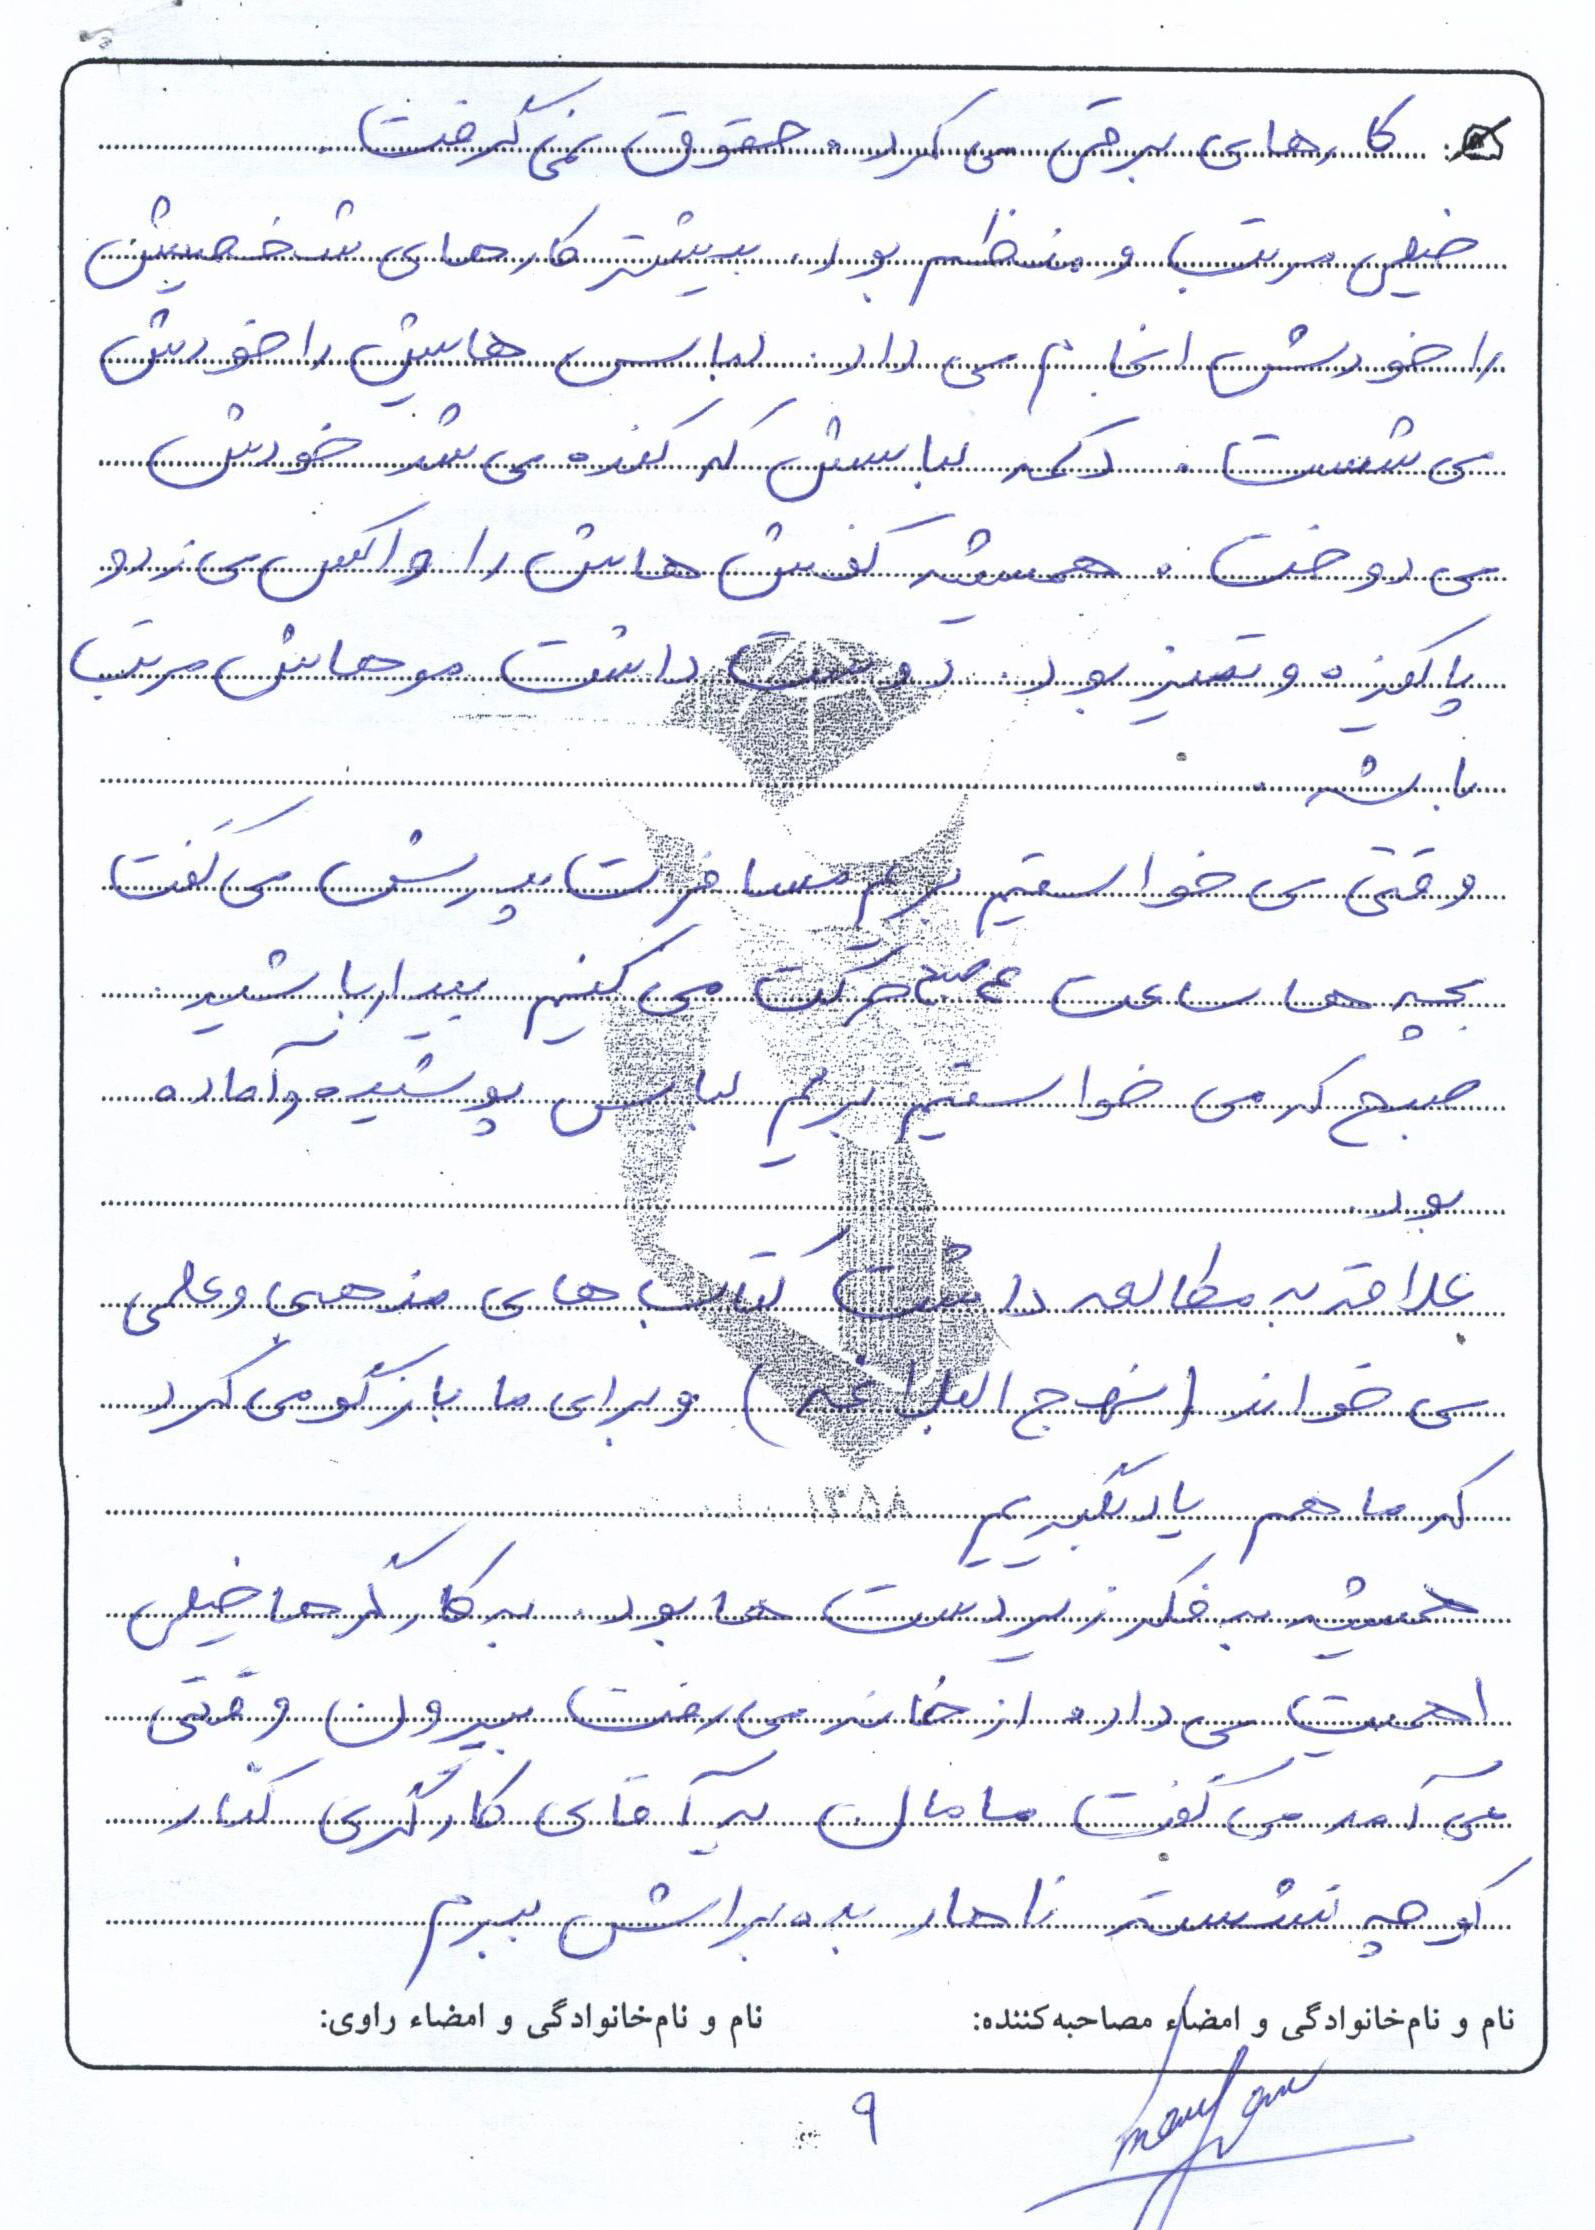 کارهای برقی می کرد. حقوق نمی گرفت.
خیلی مرتب و منظم بود. بیشتر کارهای شخصیش
را خودش انجام می داد. لباس هایش را خودش
می شست. دکمه لباسش که کنده می شد خودش
می دوخت. همیشه کفش هاش را واکس می زد و
پاکیزه و تمیز بود. دوست داشت موهاش مرتب
باشه.
وقتی می خواستیم بریم مسافرت پدرش می گفت
بچه ها ساعت ۴ صبح حرکت می کنیم بیدار باشید.
صبح که می خواستیم بریم لباس پوشیده و آماده
بود.
علاقه به مطالعه داشت کتاب های مذهبی و علمی
می خواند (نهج البلاغه) و برای ما بازگو می کرد
که ما هم یاد بگیریم
۱۳۵۸
همیشه به فکر زیردست ها بود. به کارگرها خیلی
اهمیت می داد. از خانه می رفت بیرون وقتی
می آمد می گفت مامان یه آقای کارگری کنار
کوچه نشسته ناهار بده براش ببرم
نام و نام‌خانوادگی و امضاء مصاحبه‌کننده: نام و نام‌خانوادگی و امضاء راوی:
۹